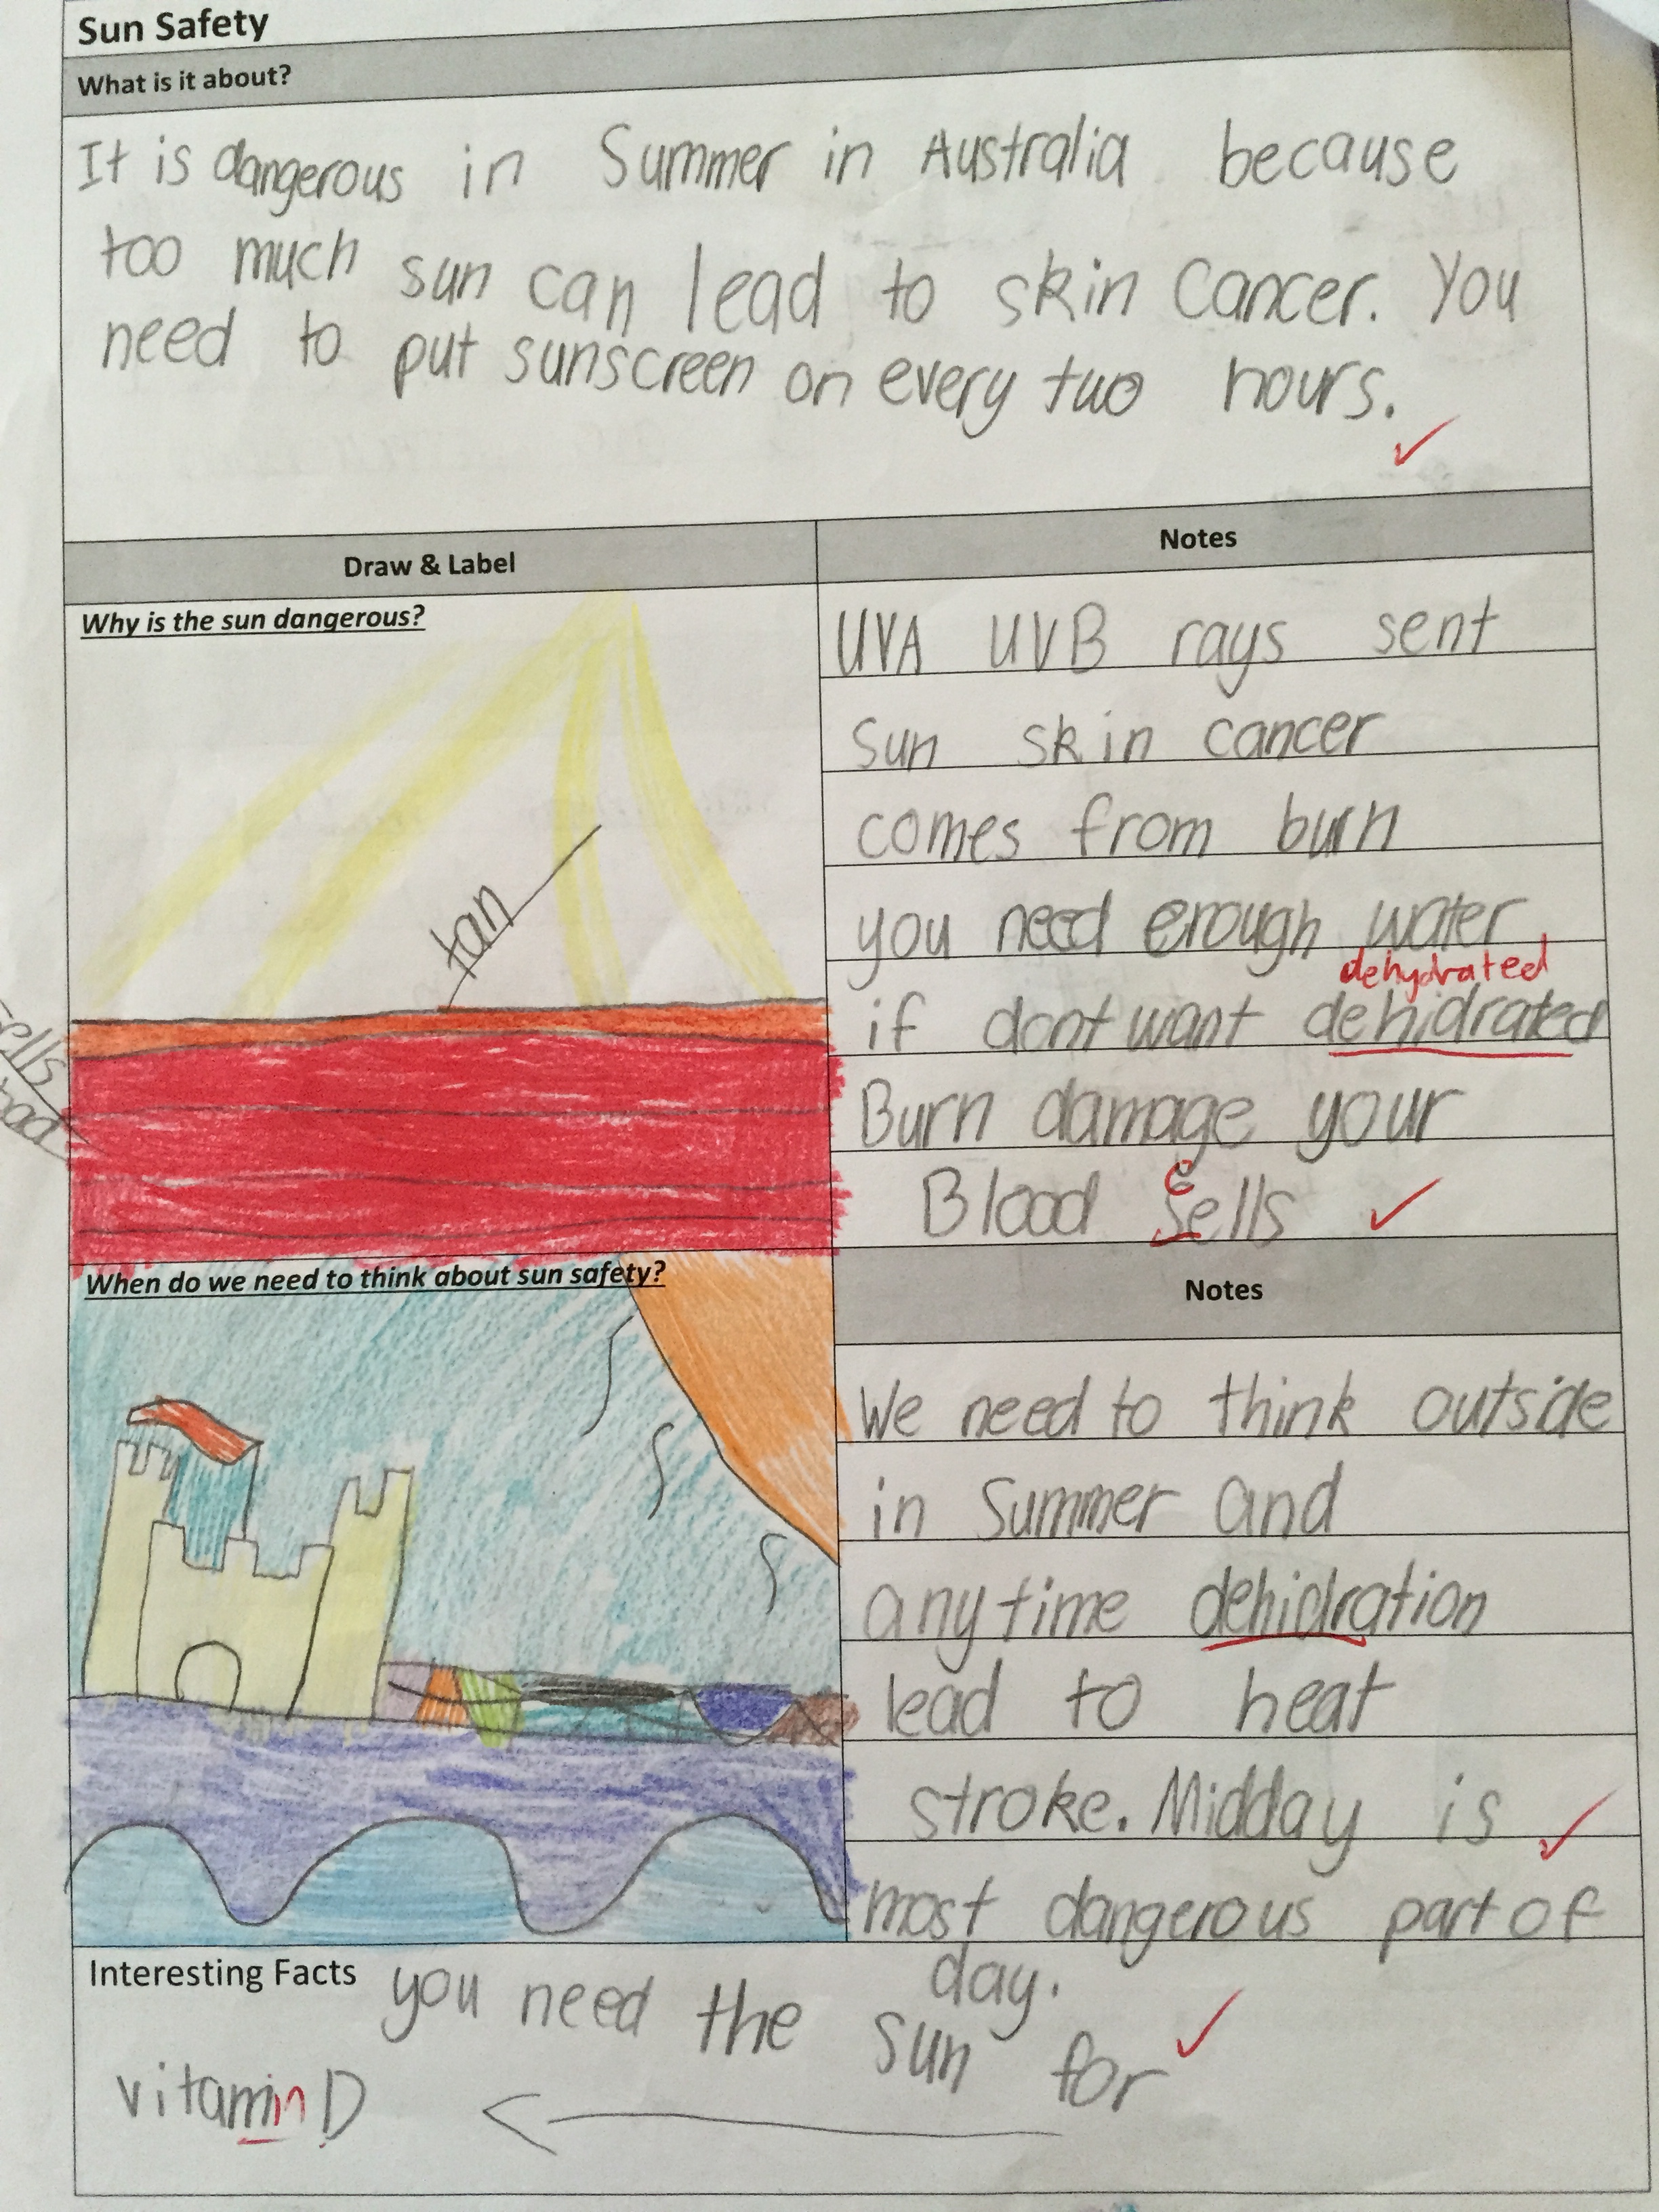 Sun Safety
What is it about?
It is dangerous in Summer in Australia because
too much sun can lead to skin Cancer. You
need to put sunscreen on every two hours.
Draw & Label
Notes
Why is the sun dangerous?
tan
UVA UVB rays sent
sun skin cancer
comes from burn
you need enough water
dehydrated
if dont want dehidrated
Burn damage your
c
Blood sells
When do we need to think about sun safety?
Notes
We need to think outside
in Summer and
anytime dehidration
lead to heat
stroke. Midday is
most dangerous part of
day.
Interesting Facts you need the sun for
vitamin D